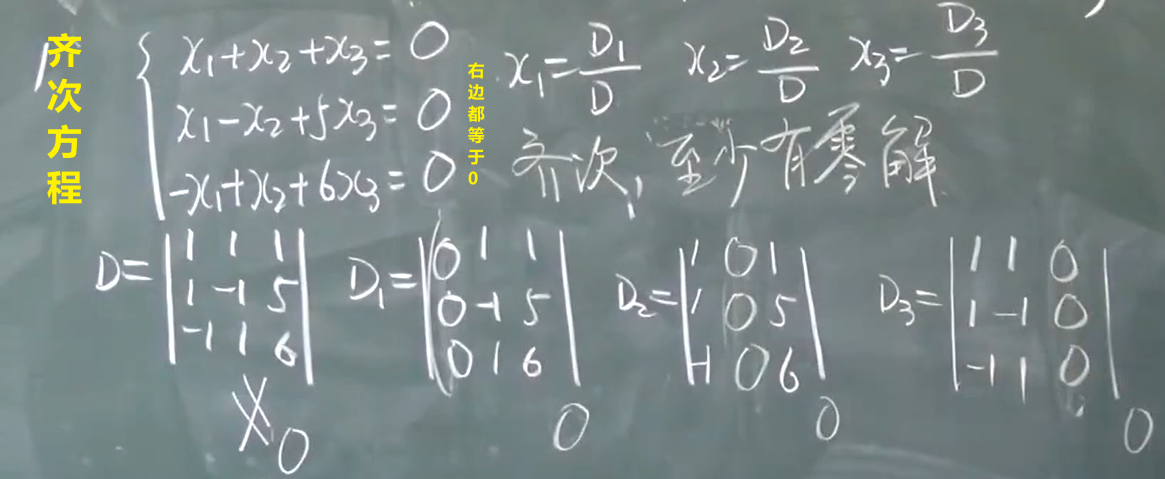 齐次方程
x₁+x₂+x₃=0
x₁-x₂+5x₃=0
-x₁+x₂+6x₃=0
右边都等于0
x₁=D₁/D x₂=D₂/D x₃=D₃/D
齐次,至少有零解
D=|1 1 1
1 -1 5
-1 1 6|
≠0
D₁=|0 1 1
0 -1 5
0 1 6|
0
D₂=|1 0 1
1 0 5
-1 0 6|
0
D₃=|1 1 0
1 -1 0
-1 1 0|
0